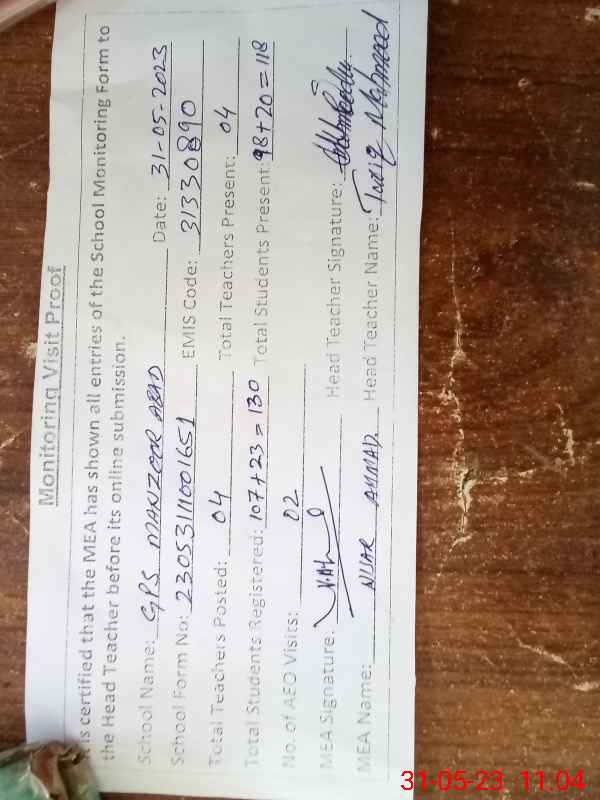 Monitoring Visit Proof
is certified that the MEA has shown all entries of the School Monitoring Form to
the Head Teacher before its online submission.
School Name: GPS MANZOOR ABAD Date: 31-05-2023
School Form No: 23053111001651 EMIS Code: 31330890
Total Teachers Posted: 04 Total Teachers Present: 04
Total Students Registered: 107+23=130 Total Students Present: 98+20=118
No. of AEO Visits: 02
MEA Signature: Head Teacher Signature:
MEA Name: NISAR AHMAD Head Teacher Name: Tariq Mahmood
31-05-23 11:04